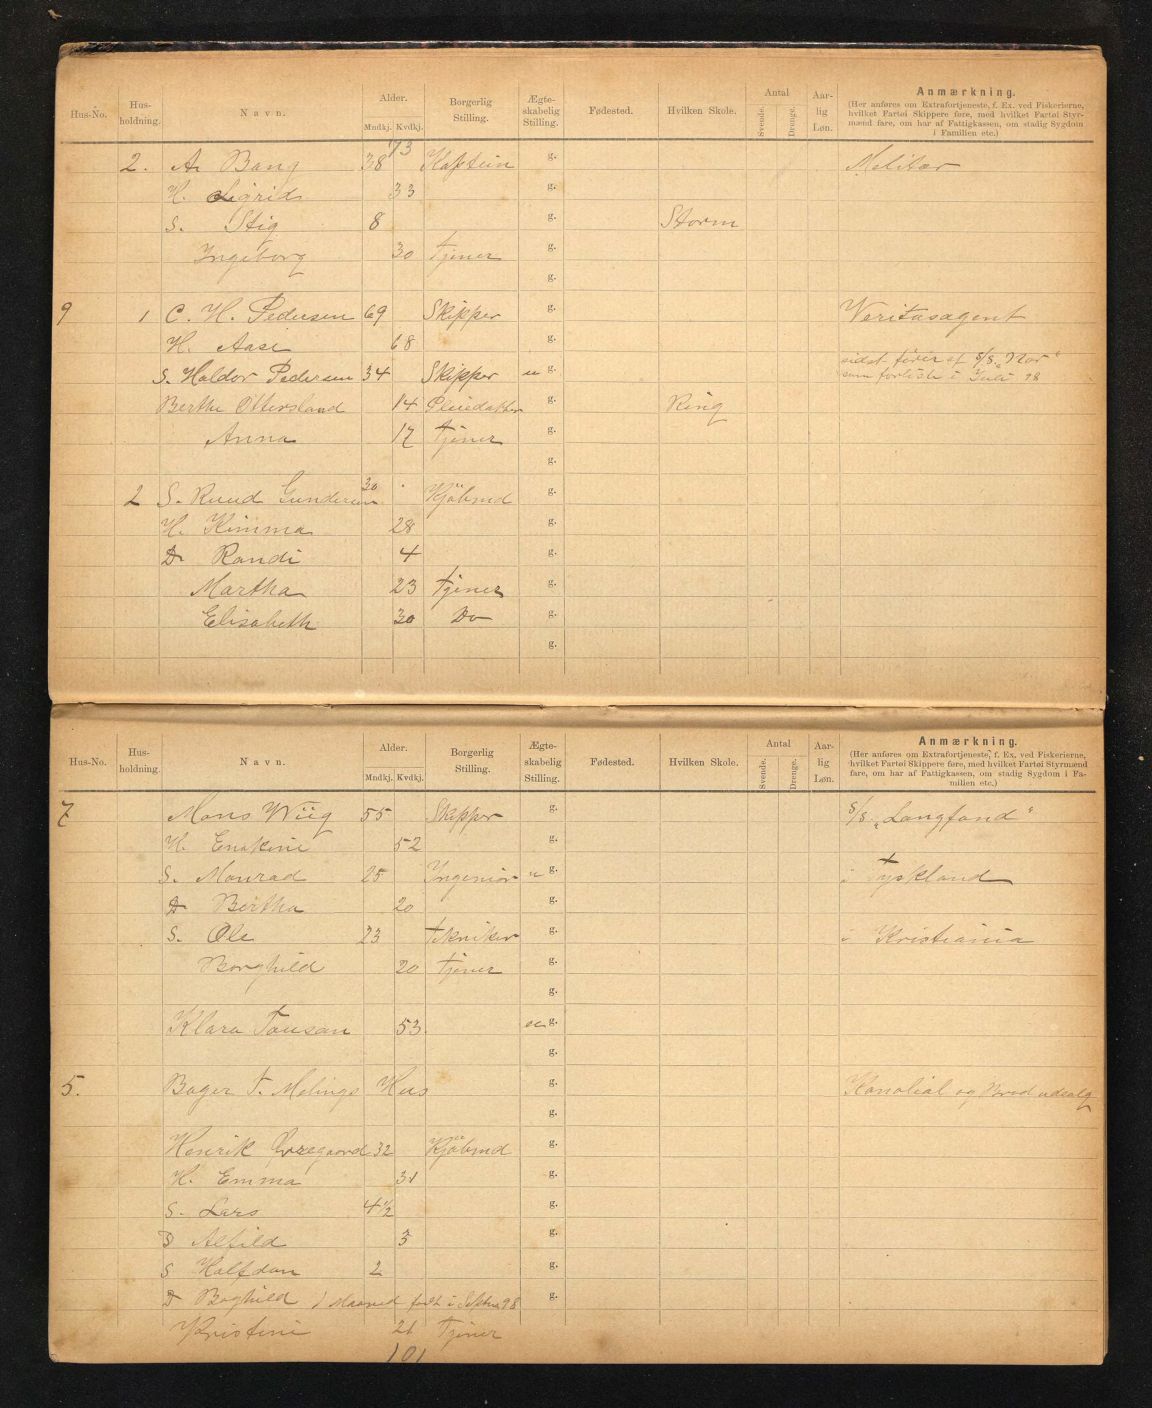 Hus-No. Hus-holdning. Navn. Alder. Mndkj. Kvdkj. Borgerlig Stilling. Ægte-skabelig Stilling. Fødested. Hvilken Skole. Antal Svende. Drenge. Aar-lig Løn. Anmærkning.
(Her anføres om Extrafortjeneste, f. Ex. ved Fiskerierne,
hvilket Fartøi Skippere føre, med hvilket Fartøi Styr-
mænd fare, om har af Fattigkassen, om stadig Sygdom
i Familien etc.)
73
2. A. Bang 38 Kaptein g. Militær
H. Sigrid 33 g.
S. Stig 8 g. Storm
Ingeborg 30 Tjener g.
g.
9 1 C. H. Pedersen 69 Skipper g. Veritasagent
H. Aase 68 g.
sidst fører af S/S. "Nor"
S. Haldor Pedersen 34 Skipper u g. som forliste i Juli 98
Berthe Ottersland 14 Pleiedatter g. Ring
Anna 17 Tjener g.
g.
2 S. Ruud Gundersen 30 Kjöbmd g.
H. Kimma 28 g.
D Randi 4 g.
Martha 23 Tjener g.
Elisabeth 30 Do g.
g.
Hus-No. Hus-holdning. Navn. Alder. Mndkj. Kvdkj. Borgerlig Stilling. Ægte-skabelig Stilling. Fødested. Hvilken Skole. Antal Svende. Drenge. Aar-lig Løn. Anmærkning.
(Her anføres om Extrafortjeneste, f. Ex. ved Fiskerierne,
hvilket Fartøi Skippere føre, med hvilket Fartøi Styrmænd
fare, om har af Fattigkassen, om stadig Sygdom i Fa-
milien etc.)
7 Mons Wiig 55 Skipper g. S/S. "Langfond"
H. 52 g.
S. Monrad 25 Ingeniör u g. i Tyskland
D Bertha 20 g.
S. Ole 23 Tekniker g. i Kristiania
Borghild 20 Tjener g.
g.
Klara Tousan 53 u g.
g.
5. Bager T. Melings Hus g. Konolial og Bröd udsalg
g.
Henrik 32 Kjöbmd g.
H. Emma 31 g.
S. Lars 4 1/2 g.
D Alfild 3 g.
S Halfdan 2 g.
D Boghild 1 Maaned födt i Septbr 98 g.
Kristine 21 Tjener
101